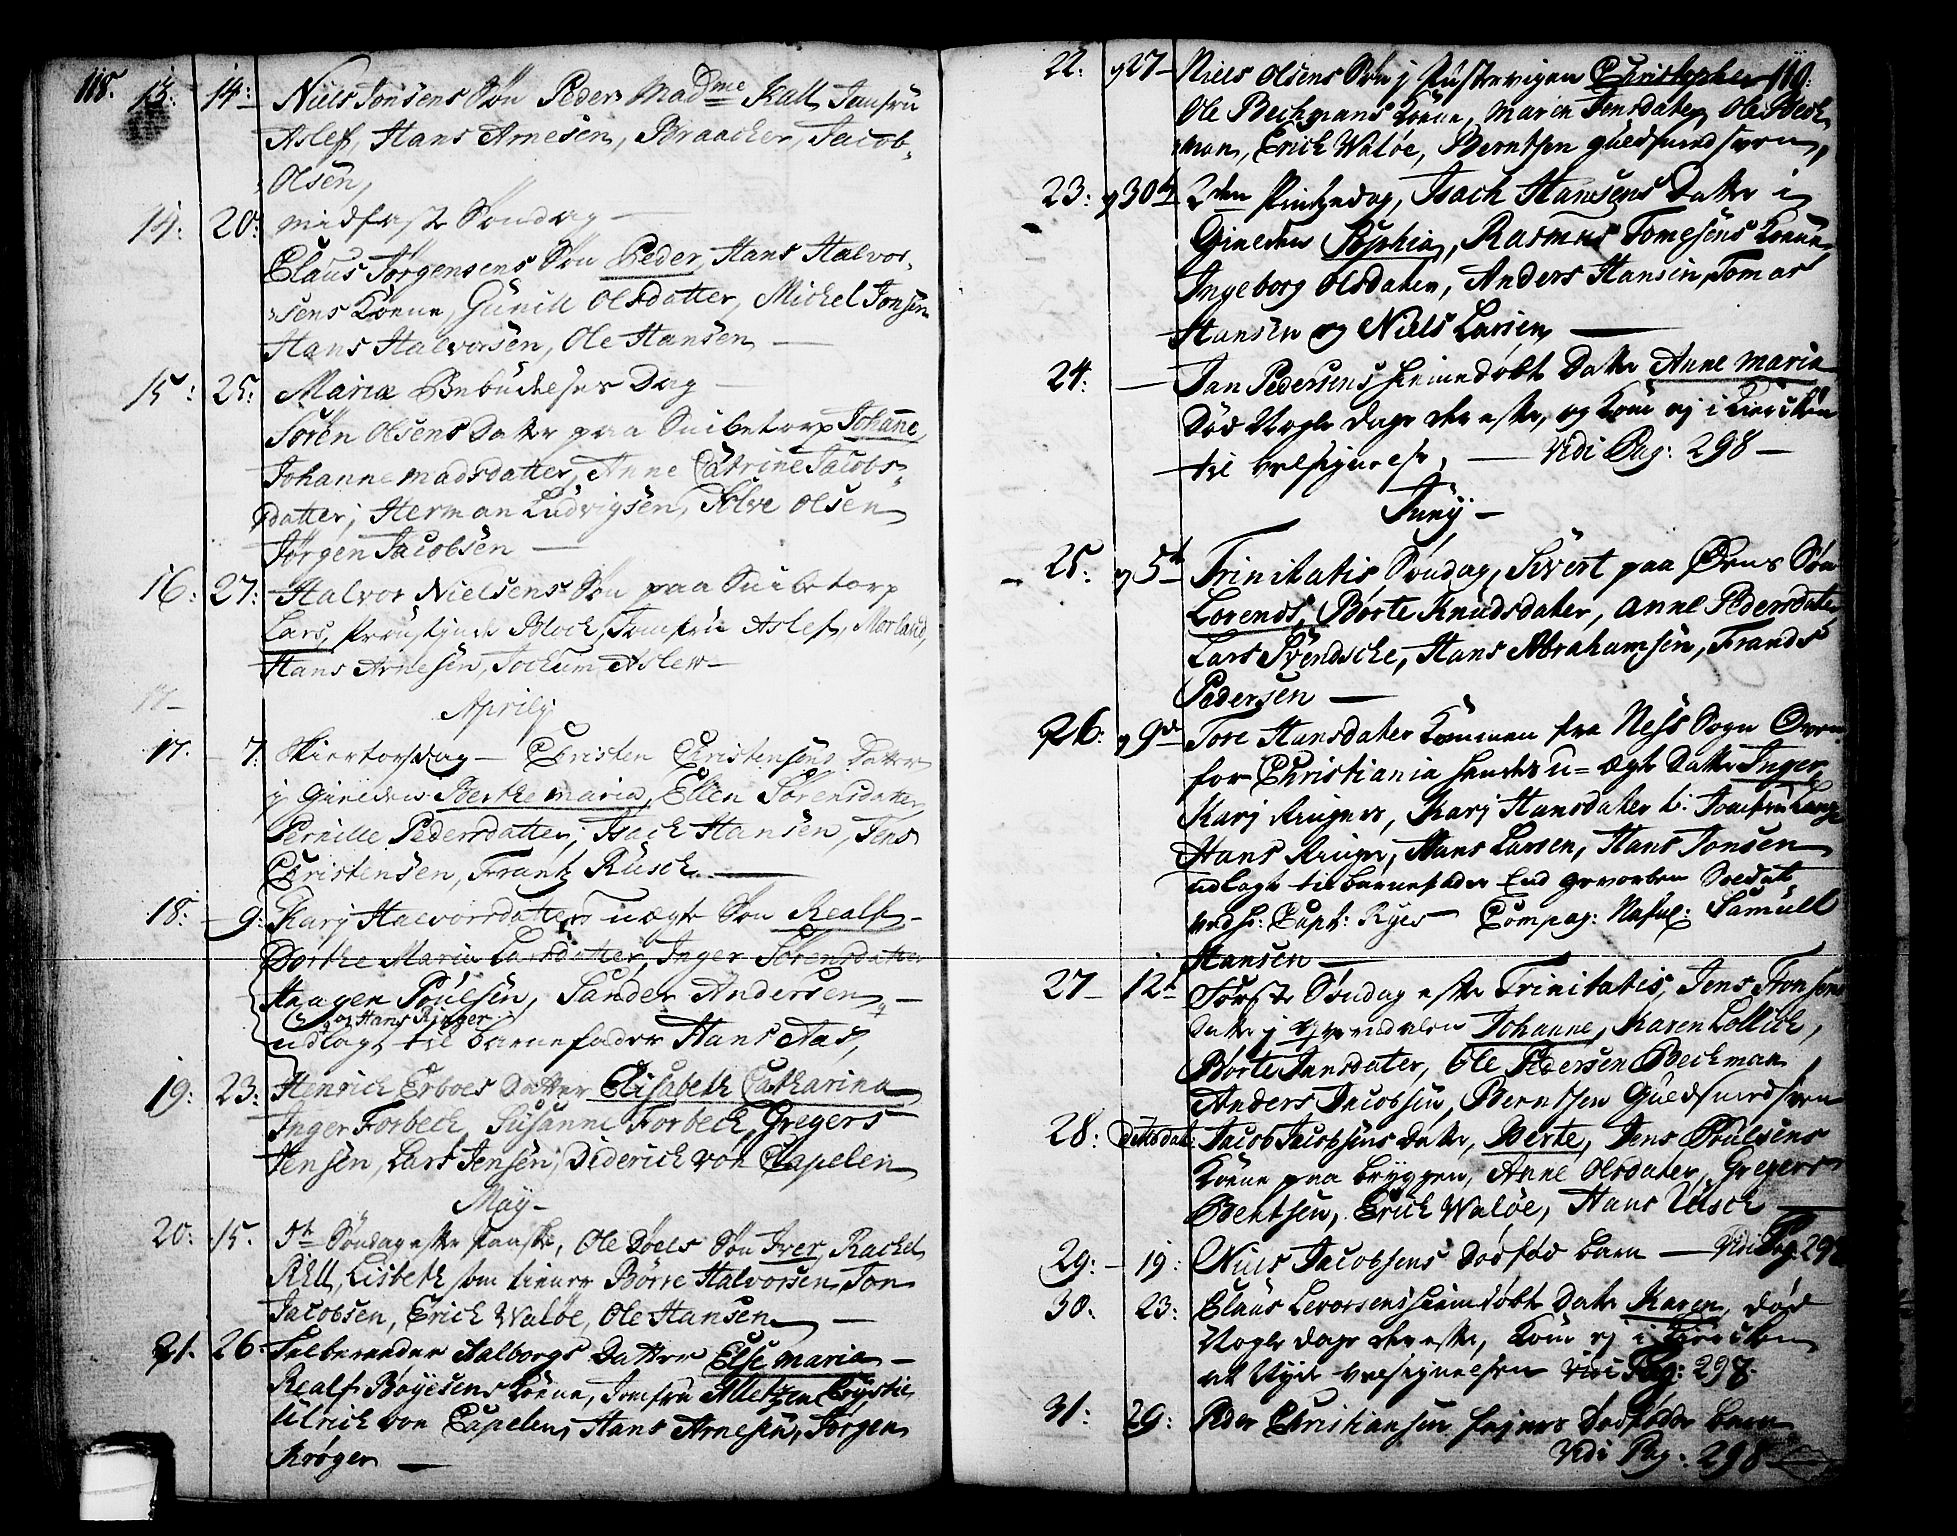 118.
13. 14. Niels Jonsens Søn Peder, Madme Kall, Jomfru
Aslef, Hans Arnesen, Braacher, Jacob
Olsen,
14: 20: midfaste Søndag
Claus Jørgensens Søn Peder, Hans Halvor-
sens Kone, Gunild Olsdatter, Michel Jonsen
Hans Halvorsen, Ole Hansen
15: 25: Mariæ Bebudelses Dag
Søren Olsens Datter paa Snibetorp Johanne,
Johanne Madsdatter, Anne Catrine Jacobs-
datter, Herman Ludvigsen, Olsen
Jørgen Jacobsen
16: 27: Halvor Nielsens Søn paa Snibetorp
Lars, Bloch, Jomfru Aslef, Morland,
Hans Arnesen, Jochum Aslew
17
Aprily
17. 7. Skiertorsdag Christen Christensens Datter
j Gineden Berthe Maria, Ellen Sørensdatter
Pernille Pedersdatter, Isach Hansen, Jens
Christensen, Frantz Rusch
18. 9. Karj Halvorsdatters uægte Søn Realf
Dorthe Maria Larsdatter, Inger Sørensdatter
Haagen Poulsen, Sander Andersen
og Hans Ringer
udlagt til barnefader Hans Aas,
19. 23. Henrich Erboes Datter Elisabeth Catharina
Inger Forbech, Susanne Forbech, Gregers
Jensen, Lars Jensen, Diderich von Capelen
May
20. 15. 5te Søndag efter Paaske, Ole Døels Søn Iver, Rachel
Lisbeth som tiener Børre Halvorsen, Jon
Jacobsen, Erich Waløe, Ole Hansen
21. 26. Aalborgs Datter Else Maria
Realf Boyesens Kone, Jomfru
Ulrich von Capelen, Hans Arnesen, Jørgen
Krøger
119.
22. 27 Niels Olsens Søn j Christopher
Ole Bechmans Kone, Maren Jensdater, Ole Bech-
man, Erich Waløe, Berntsen Guldsmedsvend,
23: 30te 2den Pintzedag, Isach Hansens Datter i
Gineden Sophia, Rasmus Tomesens Kone,
Ingeborg Olsdater, Anders Hansen, Tomas
Hansen og Niels Larsen
24: Jan Pedersens hiemedøbt Datter Anne Maria
Død Nogle dage der efter, og Kom ej i Kiercken
til velsignelse, Vidi Pag: 298
Juny
25. 5te Trinitatis Søndag, Sivert paa Ørens Søn
Lorends, Børte Knudsdater, Anne Pedersdater,
Lars Svendsche, Hans Abrahamsen, Frands
Pedersen
26. 9de Tore Hansdater Kommen fra Ness Sogn Oven
for Christiania hendes u-ægte Datter Inger
Karj Ringers, Karj Hansdater
Hans Ringer, Hans Larsen, Hans Jonsen
udlagt til barnefader End gevorben Soldat
ved Hr: Capt: Ryes Compag: Nafnl: Samuel
Hansen
27 12te Første Søndag efter Trinitatis, Jens Jonsens
Datter j Johanne, Karen
Børte Jansdater, Ole Pedersen Bechman
Anders Jacobsen, Berntsen Guldsmedsvend
28: Jacob Jacobsens Datter, Berte, Jens Poulsens
Kone paa bryggen, Anne Olsdater, Gregers
Bentsen, Erich Waløe, Hans
29: 19: Niels Jacobsens Dødfød barn Vidi Pag. 298
30. 23: Claus Levorsens hiemdøbt Datter Karen, død
Nogle dage der efter, Kom ej i Kiercken
at Nyde velsignelsen Vidi Pag: 298.
31. 29: Peder Christiansen Dødfødde barn
Vidi Pag: 298